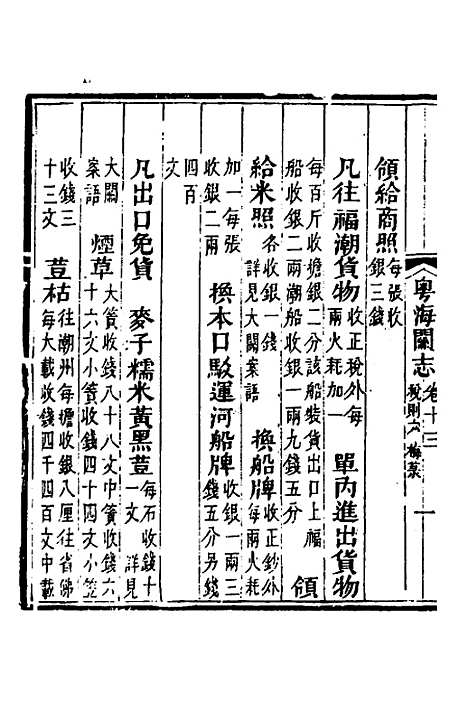 粵海關志 卷十三 稅則六 梅菉 一
領給商照 每張收
銀三錢
凡往福潮貨物 收正稅外每
兩火耗加一 單丙進出貨物
每百斤收擔銀二分該船裝貨出口上福
船收銀二兩潮船收銀一兩九錢五分 領
給米照 各收銀一錢
詳見大關案語 換船牌 收正鈔外
每兩火耗
加一每張
收銀二兩 換本口駁運河船牌 收銀一兩三
錢五分另錢
四百
文
凡出口免貨 麥子糯米黃黑荳 每石收錢十
一文 詳見
大關
案語 煙草 大簣收錢八十八文中簣收錢六
十六文小簣收錢四十四文小笠
收錢三
十三文 荳枯 往潮州每擔收銀八厘往省佛
每大載收錢四千四百文中載